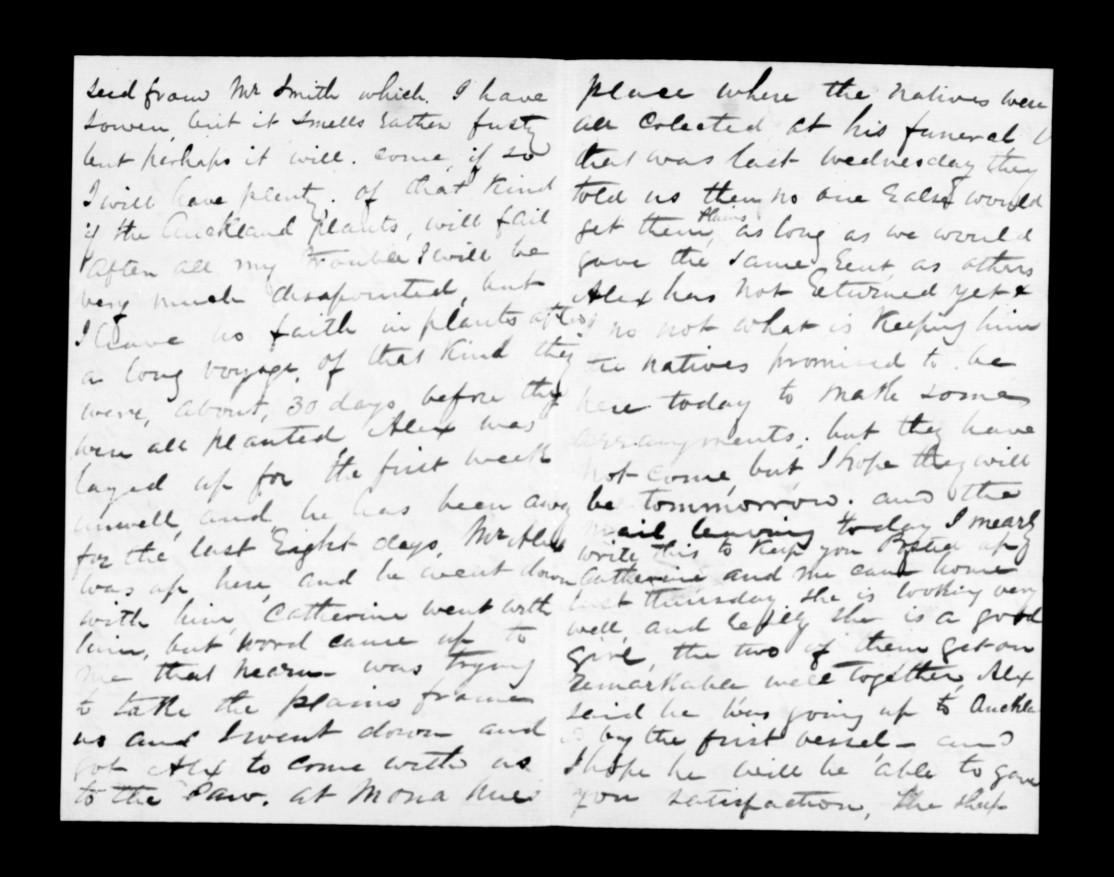 seed from Mr Smith which. I have
sowen, but it smells rather fusty
but perhaps it will. come, if so
I will have plenty. of that kind
if the Auckland plants, will fail
after all my trouble I will be
very much disapointed, but
I have no faith in plants after
a long voyage, of that kind they
were, about, 30 days, before they
were all planted, Alex was
layed up for the first week
unwell, and he has been away
for the last Eight days, Mr Alex
was up here, and he went down
with him, Catherine went with
him, but word came up to
me that was trying
to take the plains frame
us and I went down and
got Alex to come with us
to the Paw. at
place where the natives were
all colected at his funeral,
that was last wednesday they
told us then no one Ealse would
get them, plains as long as we would
gave the same Rent, as others
Alex has not Returned yet &
I no not what is Keeping him
The natives promised to be
here today to make some
arrangments. but they have
not come, but I hope they will
be tommorrow. and the
mail leaving today I mearly
write this to Keep you Posted up
Catherine and me came home
last thursday she is looking very
well, and she is a good
girl, the two of them get on
Remarkabel well together, Alex
said he was going up to Auckla
nd by the first vessel - and
I hope he will be able to gave
you satisfaction, the sheep